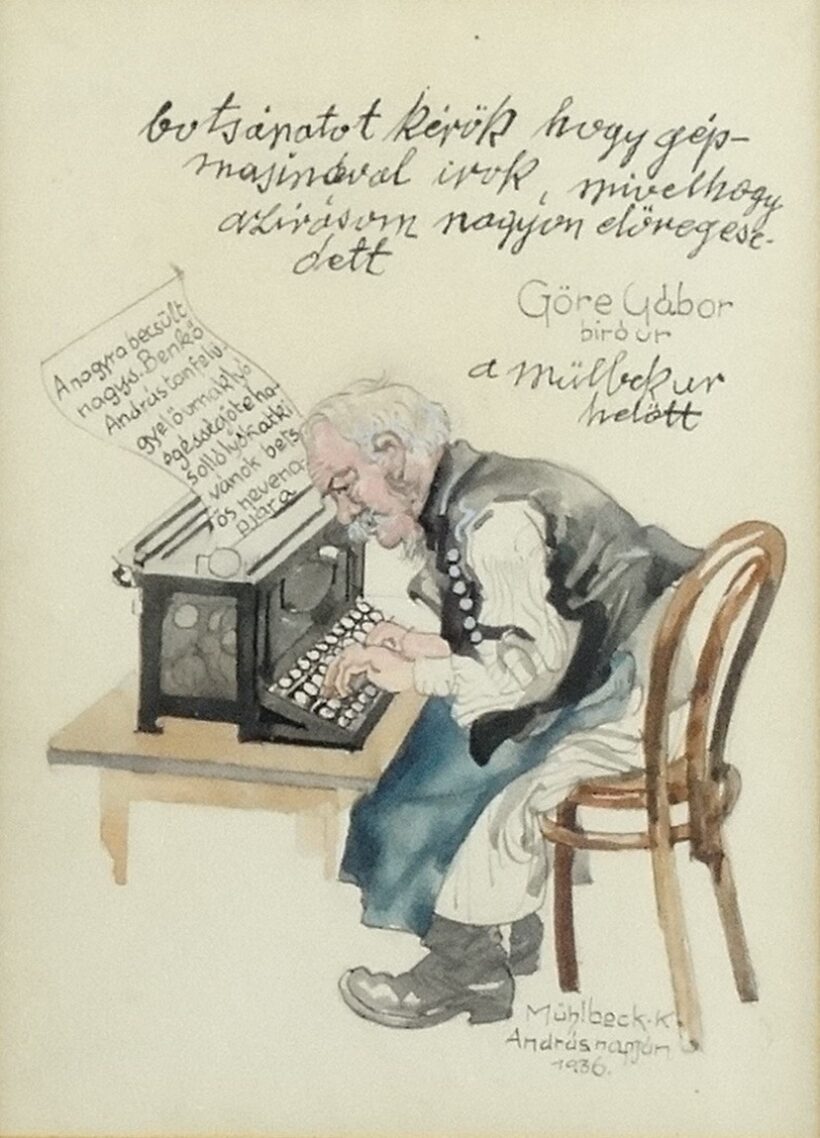 botsánatot kérök hogy gép-
masinával irok, mivelhogy
azirásom nagyon elöregese-
dett
Göre Gábor
biró ur
a mülbek ur
helött
A nagyra becsült
nagys. Benkő
András tanfelü-
gyelö urnak lyó
vánok bets
ös nevena-
pjára
Mühlbeck.K.
András napján
1936.